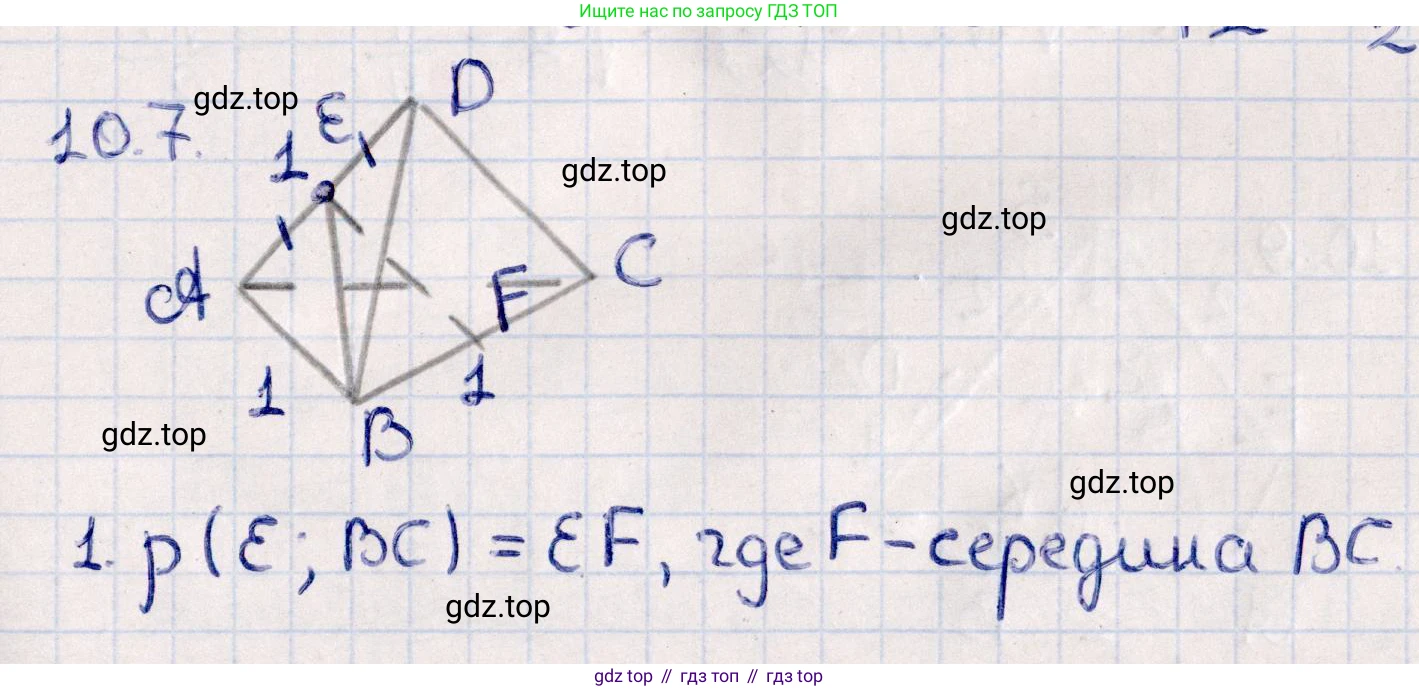 Ищите нас по запросу ГДЗ ТОП
10.7.
gdz.top
E
D
1
gdz.top
gdz.top
A
F
C
1
1
B
gdz.top
gdz.top
1. p(E; BC) = EF, где F-середина BC.
gdz.top
gdz top // гдз топ // гдз top